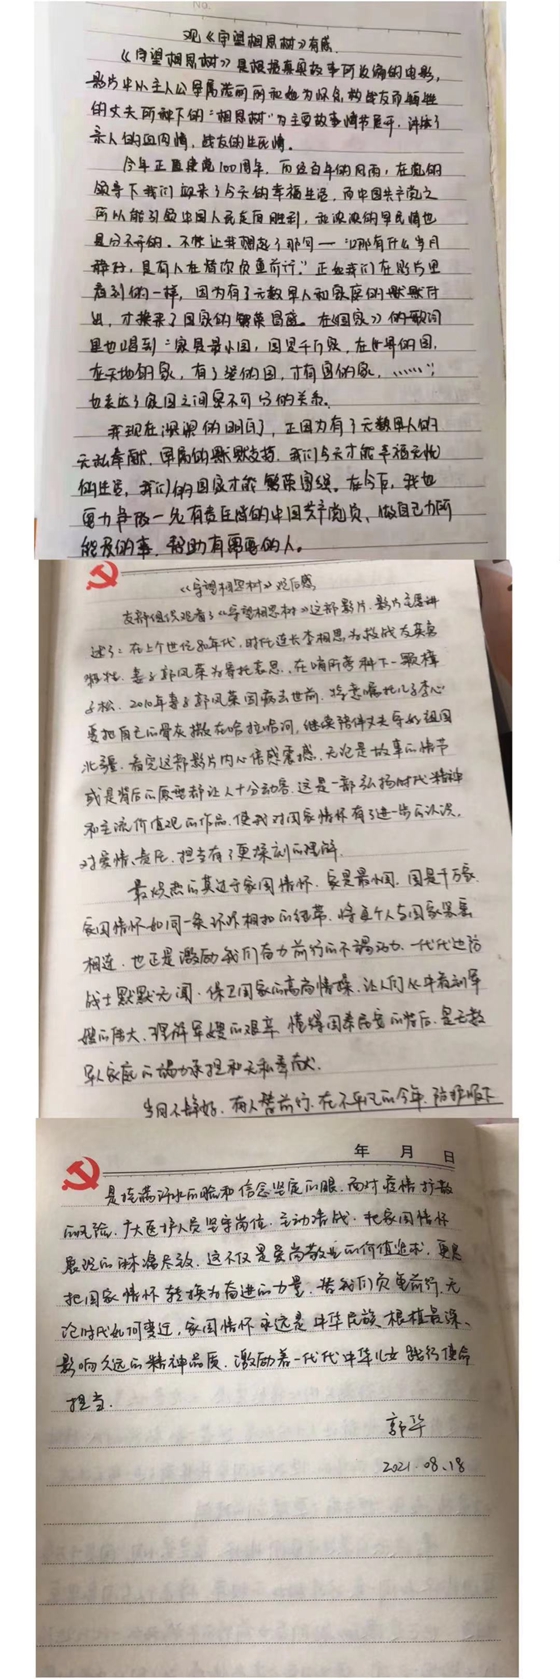 No.
观《守望相思树》有感
《守望相思树》是根据真实故事所改编的电影,
影片中以主人公军属
的丈夫所种下的"相思树"为主要故事情节展开,讲述了
亲人的血肉情,战友的生死情。
今年正直建党100周年,历经百年的风雨,在党的
领导下我们迎来了今天的幸福生活,而中国共产党之
所以能引领中国人民走向胜利,和浓浓的军民情也
是分不开的。不禁让我想起了那句——"哪有什么岁月
静好,是有人在替你负重前行。"正如我们在影片里
看到的一样,因为有了无数军人和家庭的默默付
出,才换来了国家的繁荣富强。在《国家》的歌词
里也唱到:"家是最小国,国是千万家,在世界的国,
在天地的家,有了强的国,才有富的家,……";
也表达了家国之间密不可分的关系。
我现在深深的明白了,正因为有了无数军人的
无私奉献,军属的默默支持,我们今天才能幸福无忧
的生活,我们的国家才能繁荣富强。在今后,我也
要力争做一名有责任感的中国共产党员,做自己力所
能及的事,帮助有需要的人。
《守望相思树》观后感
支部组织观看了《守望相思树》这部影片,影片主要讲
述了:在上个世纪80年代,时任连长李相恩为救战友英勇
牺牲,妻子郭凤荣为寄托哀思,在哨所旁种下一颗樟
子松,2010年妻子郭凤荣因病去世前,将亲嘱托儿子李心
要把自己的骨灰撒在哈拉哈河,继续陪伴丈夫守好祖国
北疆,看完这部影片内心倍感震撼,无论是故事的情节
或是背后的原型都让人十分动容,这是一部弘扬时代精神
和主流价值观的作品,使我对国家情怀有了进一步的认识,
对爱情、责任、担当有了更深刻的理解。
最炽热的莫过于家国情怀,家是最小国,国是千万家,
家国情怀如同一条环环相扣的纽带,将每个人与国家紧密
相连,也正是激励我们奋力前行的不竭动力,一代代边防
战士默默无闻,保卫国家的高尚情操,让人们从中看到军
嫂的伟大,理解军嫂的艰辛,懂得国泰民安的背后,是无数
军人家庭的竭力承担和无私奉献。
岁月不静好,有人替前行,在不平凡的今年,防护服下
年 月 日
是挂满汗水的脸和信念坚定的眼,面对疫情扩散
的风险,广大医护人员坚守岗位,主动请战,把家国情怀
展现的淋漓尽致,这不仅是崇尚敬业的价值追求,更是
把国家情怀转换为奋进的力量,替我们负重前行,无
论时代如何变迁,家国情怀永远是中华民族根植最深、
影响久远的精神品质,激励着一代代中华儿女践行使命
担当。
郭华
2021.08.18